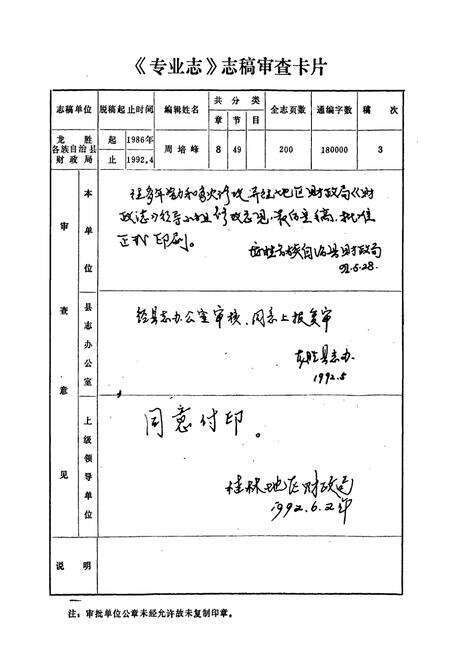 《专业志》志稿审查卡片
志稿单位 脱稿起止时间 编辑姓名 共分类 全志页数 通编字数 稿次
章 节 目
龙胜 起 1986年
各族自治县 周培峰 8 49 200 180000 3
财政局 止 1992.4
审查意见
本单位
经多年努力和多次修改,并经地区财政局《财
政志》领导小组修改意见,最后定稿,批准
正式印刷。
龙胜各族自治县财政局
92.5.28.
县志办公室
经县志办公室审核,同意上报复审
龙胜县志办
1992.5
上级领导单位
同意付印。
桂林地区财政局
1992.6.2
说明
注:审批单位公章未经允许故未复制印章。